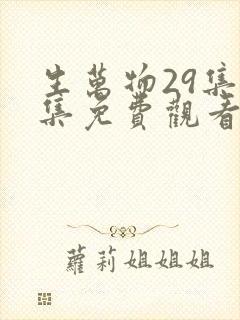 生萬物29集
集免費觀看
蘿莉姐姐姐